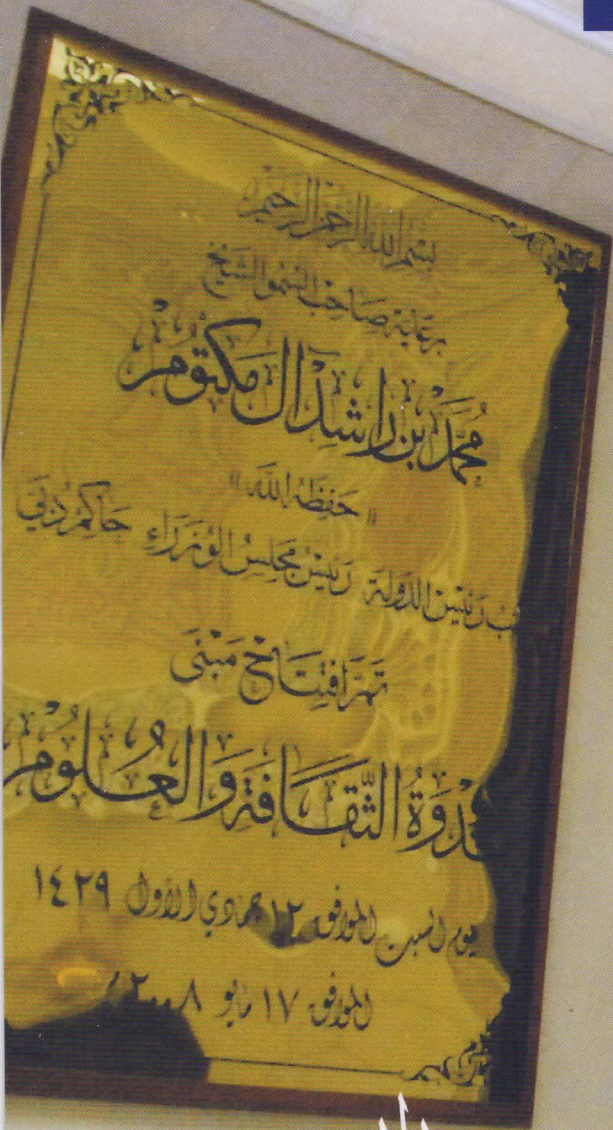 بسم الله الرحمن الرحيم
برعاية صاحب السمو الشيخ
محمد بن راشد آل مكتوم
"حفظه الله"
ئب رئيس الدولة رئيس مجلس الوزراء حاكم دبي
تم افتتاح مبنى
ندوة الثقافة والعلوم
يوم السبت الموافق ١٢ جمادي الأول ١٤٢٩
الموافق ١٧ مايو ٢٠٠٨